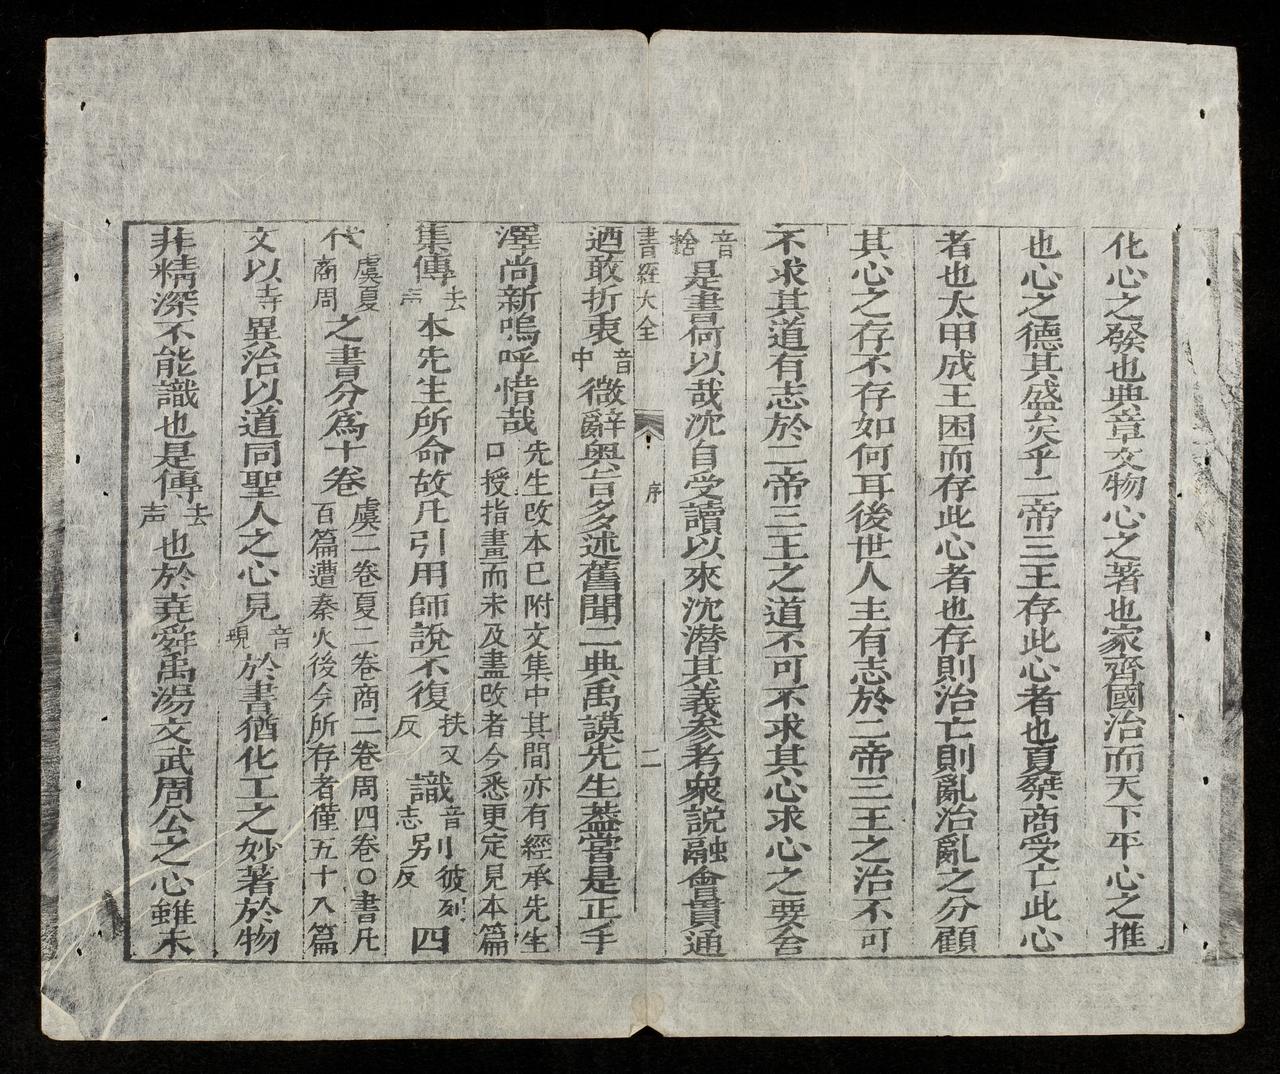 化心之發也典章文物心之著也家齊國治而天下平心之推
也心之德其盛矣乎二帝三王存此心者也夏桀商受亡此心
者也太甲成王困而存此心者也存則治亡則亂治亂之分顧
其心之存不存如何耳後世人主有志於二帝三王之治不可
不求其道有志於二帝三王之道不可不求其心求心之要舍
音捨是書何以哉沈自受讀以來沈潜其義参考衆說融會貫通
書經大全 序 二
廼敢折衷音中微辭奥旨多述舊聞二典禹謨先生盖嘗是正手
澤尚新嗚呼惜哉先生改本已附文集中其間亦有經承先生口授指畫而未及盡改者今悉更定見本篇
集傳去声本先生所命故凡引用師說不復扶又反識音志別彼列反四
代虞夏商周之書分爲十卷虞二卷夏二卷商二卷周四卷○書凡百篇遭秦火後今所存者僅五十八篇
文以寺異治以道同聖人之心見音現於書猶化工之妙著於物
非精深不能識也是傳去声也於堯舜禹湯文武周公之心雖未